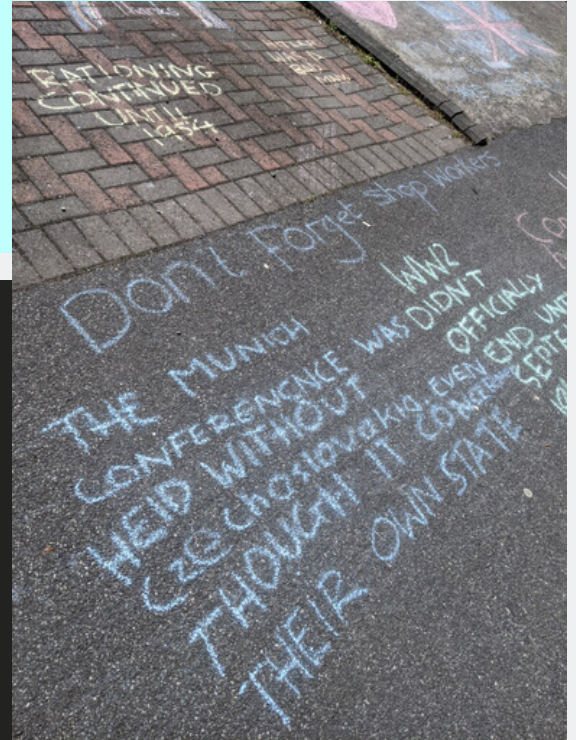 Thanks
RATIONING
CONTINUED
UNTIL
1954
Don't Forget shop workers
THE MUNICH
CONFERENCNCE WAS
HElD WITHOUT
CzEchoslovakia, EVEN
THOUGH IT CONCERNED
THEIR OWN STATE
WW2
DIDN'T
OFFICIALLY
END UNTI
SEPTE